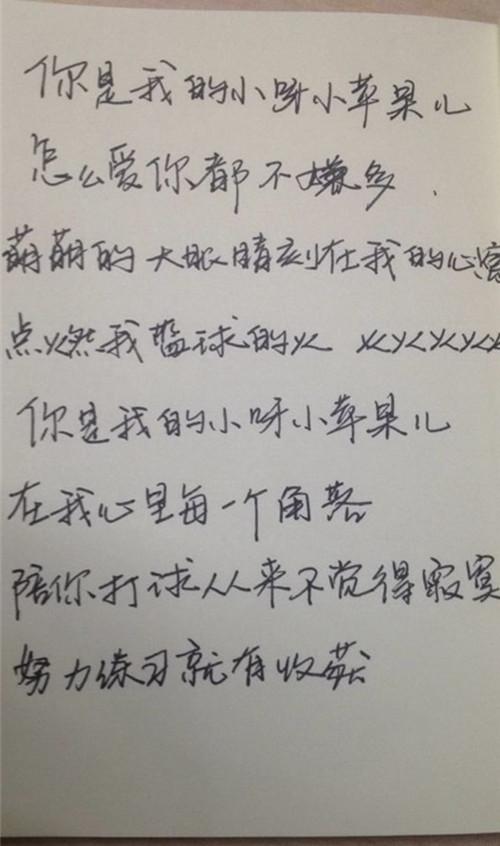 你是我的小呀小苹果儿
怎么爱你都不嫌多
萌萌的大眼睛刻在我的心窝
点燃我篮球的火 火火火火
你是我的小呀小苹果儿
在我心里每一个角落
陪你打球从来不觉得寂寞
努力练习就有收获